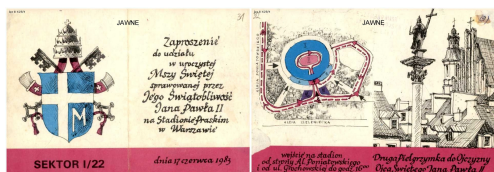 JAWNE
Zaproszenie
do udziału
w uroczystej
Mszy Świętej
sprawowanej przez
Jego Świątobliwość
Jana Pawła II
na Stadionie Praskim
w Warszawie
M
SEKTOR I/22
dnia 17 czerwca 1983
JAWNE
wejście na stadion
od strony Al. Poniatowskiego
i od ul. Grochowskiej do godz. 16⁰⁰
Druga Pielgrzymka do Ojczyzny
Ojca Świętego Jana Pawła II